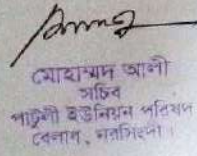 মোহাম্মদ আলী
সচিব
পাটুলী ইউনিয়ন পরিষদ
বেলাব, নরসিংদী।